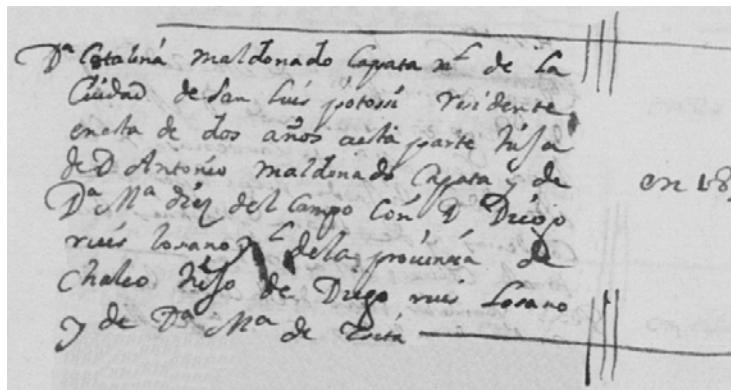 Dª Catalina maldonado Capata nl de la
Ciudad de San luis potossi residente
enesta de dos años aesta parte hija
de D Antonio maldonado Capata y de
Dª Mª diez del Campo Con D Diego
ruis losano nl de la provinsia de
Chalco hijo de Diego ruis Losano
y de Dª Mª de
en 18